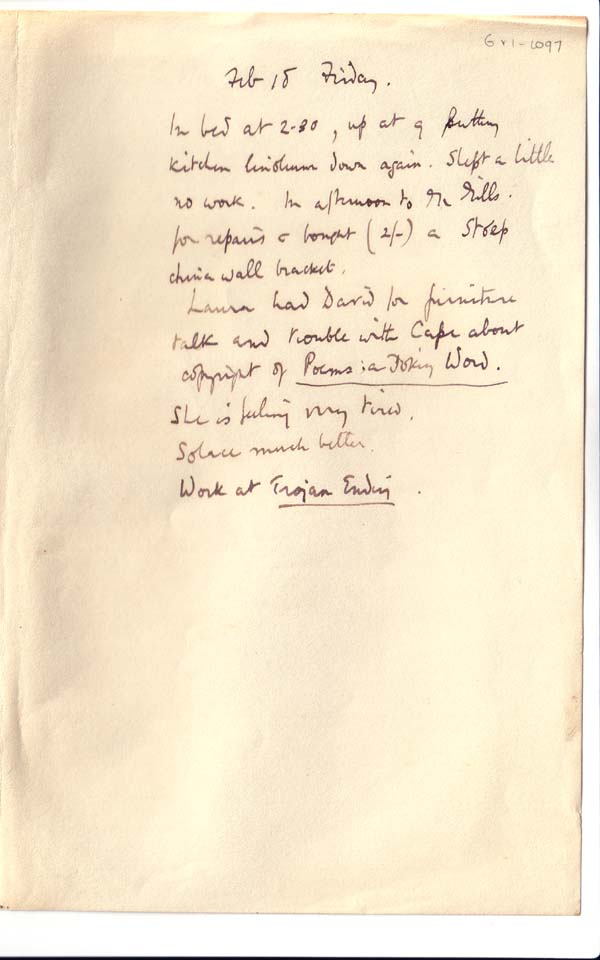 GV1-1097
Feb 18 Friday.
In bed at 2-30, up at 9 putting
kitchen linoleum down again. Slept a little
no work. In afternoon to Mr Mills.
for repairs & bought (2/-) a
china wall bracket.
Laura had David for furniture
talk and trouble with Cape about
copyright of Poems: a Joking Word.
She is feeling very tired.
Solace much better.
Work at Trojan Ending.